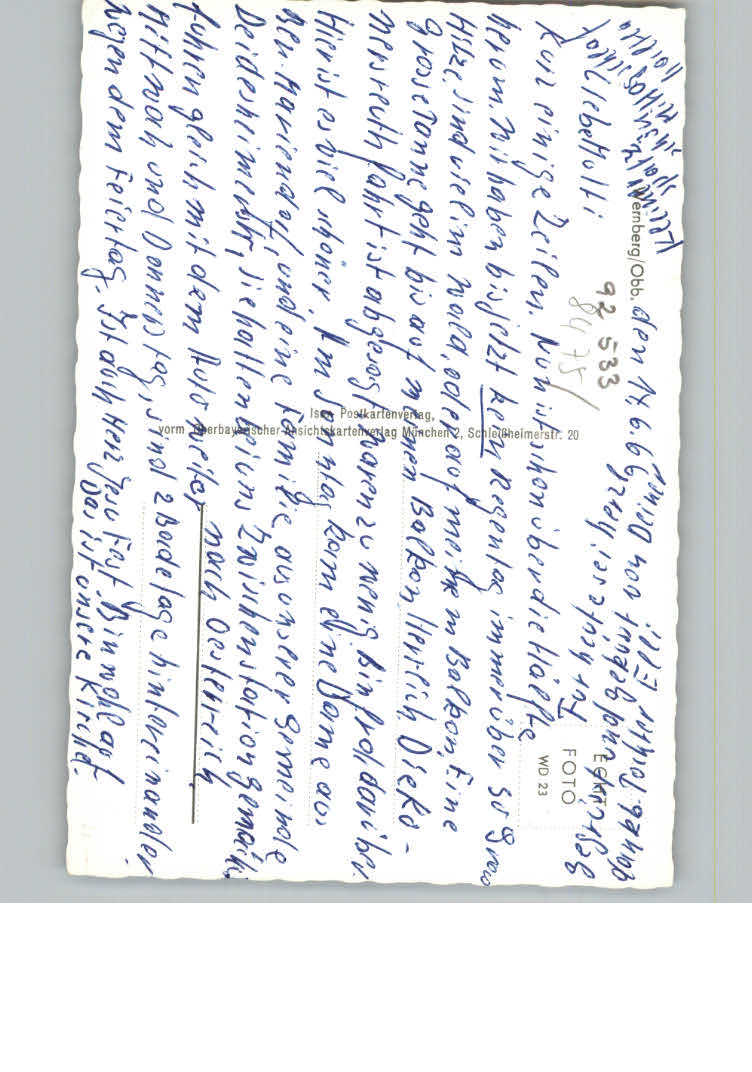 Wernberg/Obb.
den 14.6.66
92 533
8475/
Isma Postkartenverlag,
vorm. Oberbayerischer Ansichtskartenverlag München 2, Schleißheimerstr. 20
ECHT
FOTO
WD 23
Liebe Molli
Kurz einige Zeilen. Nun ist schon über die Hälfte
herum. Wir haben bis jetzt kein Regentag immer über 30 Grad
Hitze, sind viel im Wald, oder auf meinem Balkon, Eine
Grosse Tanne geht bis auf meinen Balkon Herrlich. Die
fahrt ist abgesagt waren zu wenig. Bin froh darüber
Hier ist es viel schöner. Am Sonntag kam eine Dame aus
Mariendorf, und eine Familie aus unserer Gemeinde
Deidesheimerstr, sie hatten bei uns Zwischenstation gemacht
fuhren gleich mit dem Auto weiter nach Oesterreich.
Mittwoch und Donnerstag, sind 2 Badetage hintereinander
wegen dem Feiertag. Ist auch Herz Jesu Fest. Bin wohlauf
Das ist unsere Kirche.